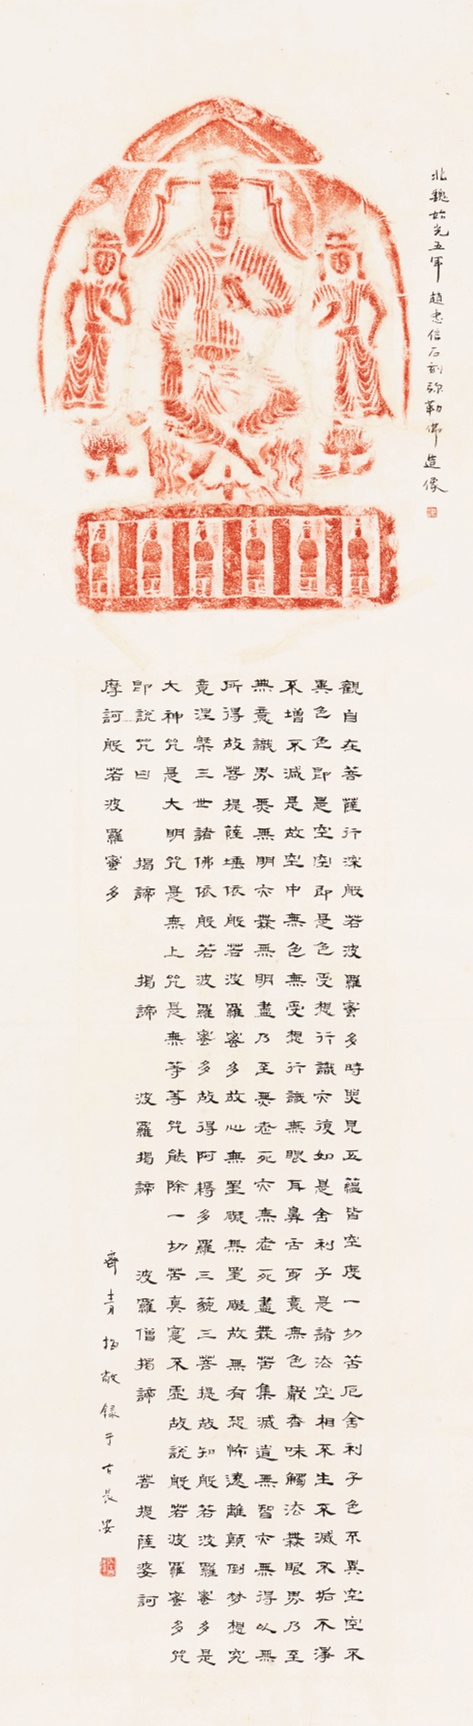 北魏始光五年 趙忠信石刻弥勒佛造像
觀自在菩薩行深般若波羅蜜多時照見五蘊皆空度一切苦厄舍利子色不異空空不
異色色即是空空即是色受想行識亦復如是舍利子是諸法空相不生不滅不垢不淨
不增不減是故空中無色無受想行識無眼耳鼻舌身意無色聲香味觸法無眼界乃至
無意識界無無明亦無無明盡乃至無老死亦無老死盡無苦集滅道無智亦無得以無
所得故菩提薩埵依般若波羅蜜多故心無罣礙無罣礙故無有恐怖遠離顛倒梦想究
竟涅槃三世諸佛依般若波羅蜜多故得阿耨多羅三藐三菩提故知般若波羅蜜多是
大神咒是大明咒是無上咒是無等等咒能除一切苦真實不虛故說般若波羅蜜多咒
即說咒曰 揭諦 揭諦 波羅揭諦 波羅僧揭諦 菩提薩婆訶
摩訶般若波羅蜜多
齊青 敬錄于古長安